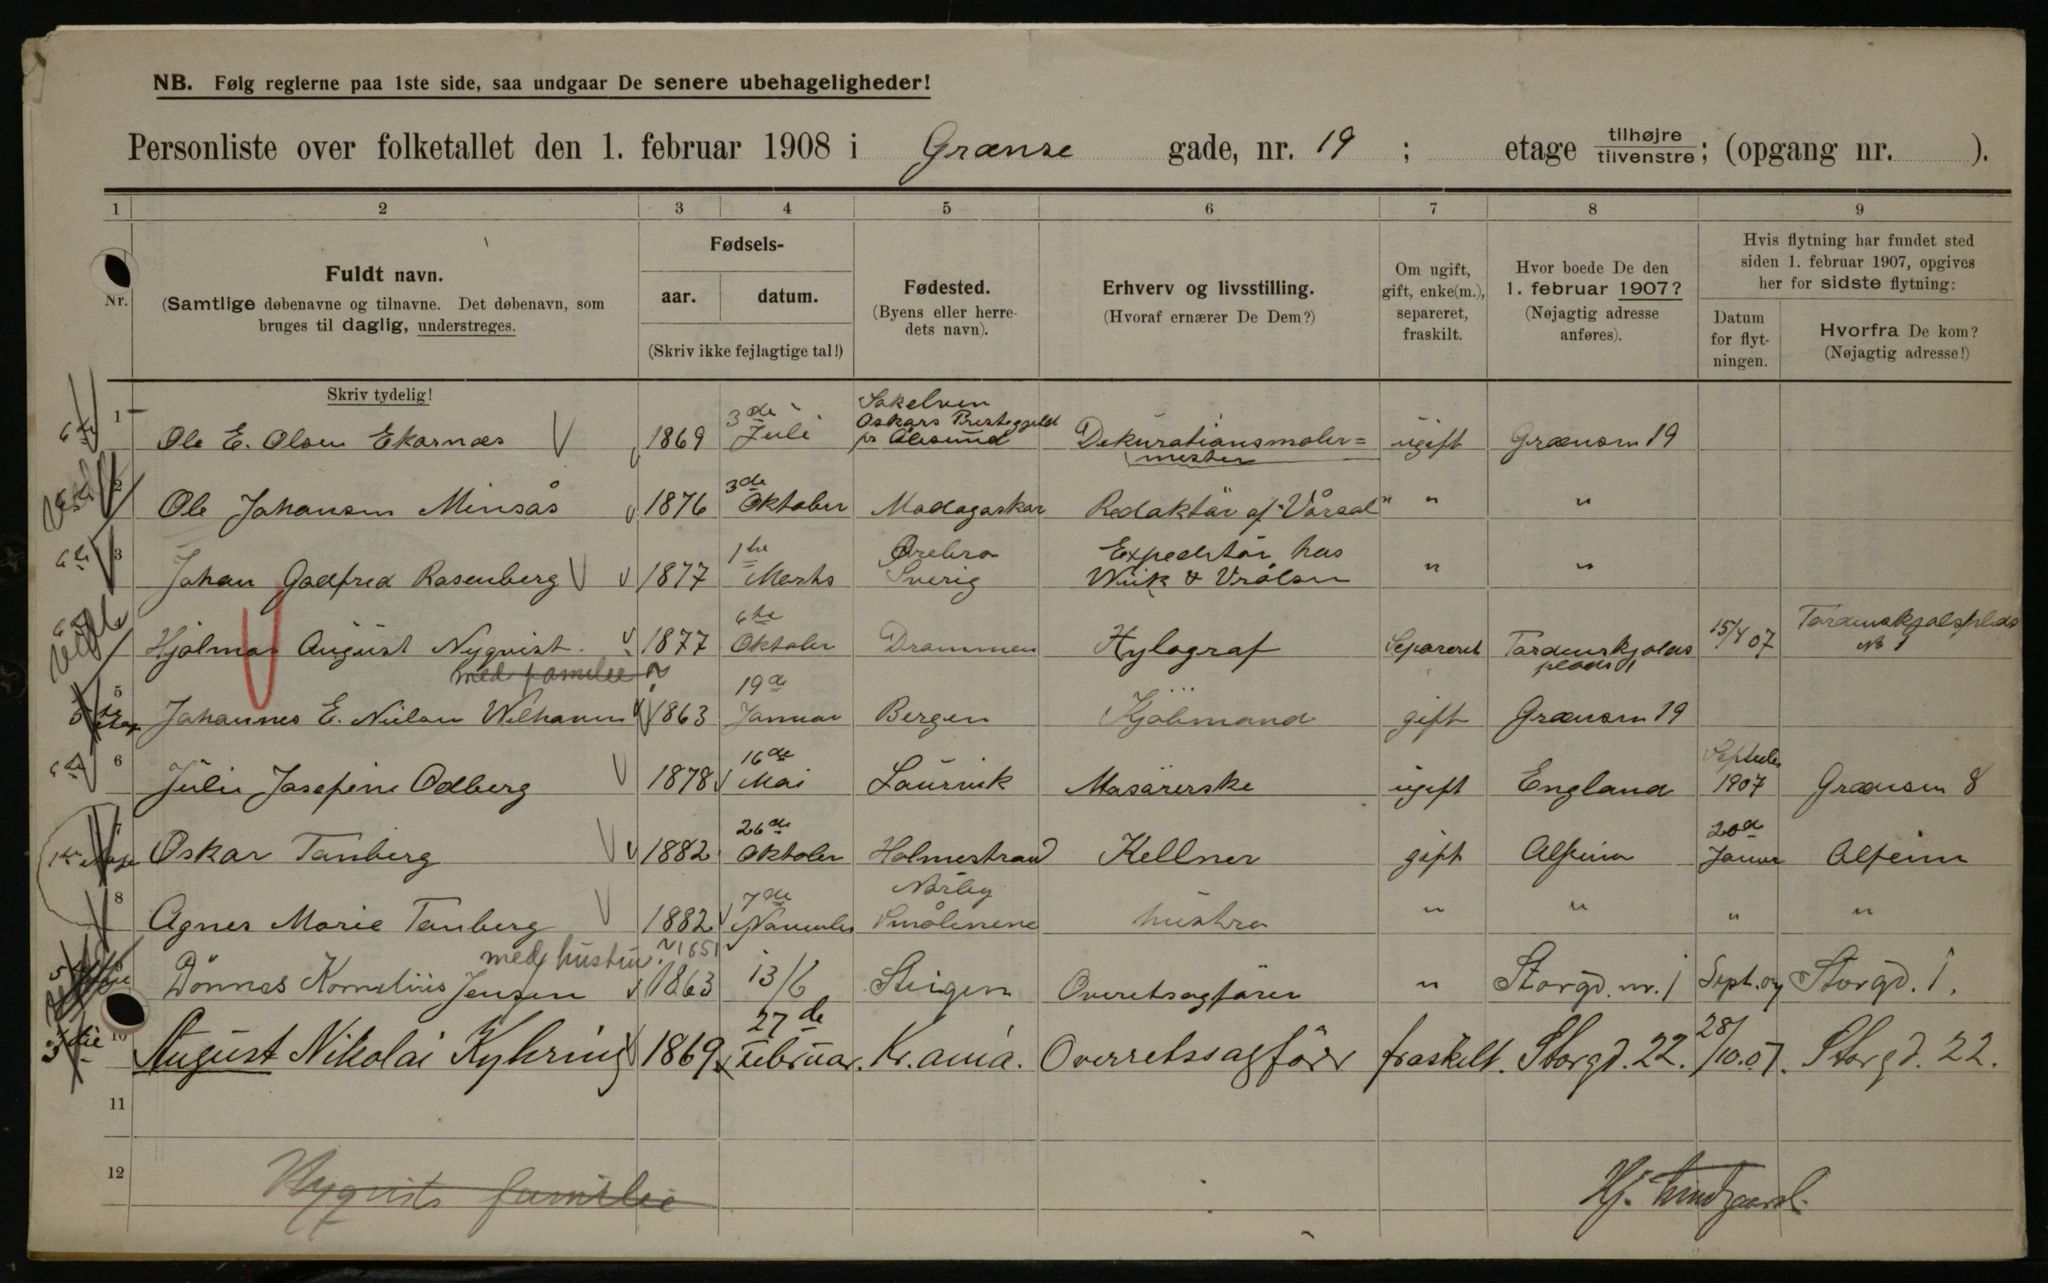 NB. Følg reglerne paa 1ste side, saa undgaar De senere ubehageligheder!
Personliste over folketallet den 1. februar 1908 i Grænse gade, nr. 19 ; etage tilhøjre / tilvenstre; (opgang nr. ).
1 2 3 4 5 6 7 8 9
Nr.
Fuldt navn.
(Samtlige døbenavne og tilnavne. Det døbenavn, som
bruges til daglig, understreges.
Fødsels-
aar. datum.
(Skriv ikke fejlagtige tal!)
Fødested.
(Byens eller herre-
dets navn).
Erhverv og livsstilling.
(Hvoraf ernærer De Dem?)
Om ugift,
gift, enke(m.),
separeret,
fraskilt.
Hvor boede De den
1. februar 1907?
(Nøjagtig adresse
anføres).
Hvis flytning har fundet sted
siden 1. februar 1907, opgives
her for sidste flytning:
Datum
for flyt-
ningen.
Hvorfra De kom?
(Nøjagtig adresse!)
Skriv tydelig!
1 Ole E. Olsen Ekornæs 1869 3de Juli Søkelven Oskars Prestegjeld pr Ålesund Dekurationsmaler= mester ugift Grænsen 19
2 Ole Johansen Minsås 1876 3de Oktober Madagaskar Redaktör af "Vårsol" " "
3 Johan Godfred Rosenberg 1877 1te Marts Örebro Sverig Expeditör hos Wiik & Vrålsen " "
Hjalmar August Nyqvist 1877 6te Oktober Drammen Xylograf Separeret Tordenskjolds plads 1 15/4 07 Tordenskjolds plads No 1
med familie
5 Johannes E. Nielsen Welhaven 1863 19de Januar Bergen Kjöbmand gift Grænsen 19
6 Julie Josefine Odberg 1878 16de Mai Laurvik Masörerske ugift England September 1907 Grænsen 8
Oskar Tanberg 1882 26de Oktober Holmestrand Kellner gift Alfeim 20de Januar Alfeim
8 Agnes Marie Tanberg 1882 7de November Smålenene hustru " " " "
med hustru 1851
Dönnes Kornelius Jensen 1863 13/6 Steigen Overetsagförer " Storgd. nr. 1 Sept. 07 Storgd. 1.
10 August Nikolai Kyhring 1869 27de Februar. Kr.ania. Overretssagförer fraskilt. Storgd. 22. 28/10.07. Storgd. 22.
11
12
Nyqvists familie
Hj. Lindgaard.